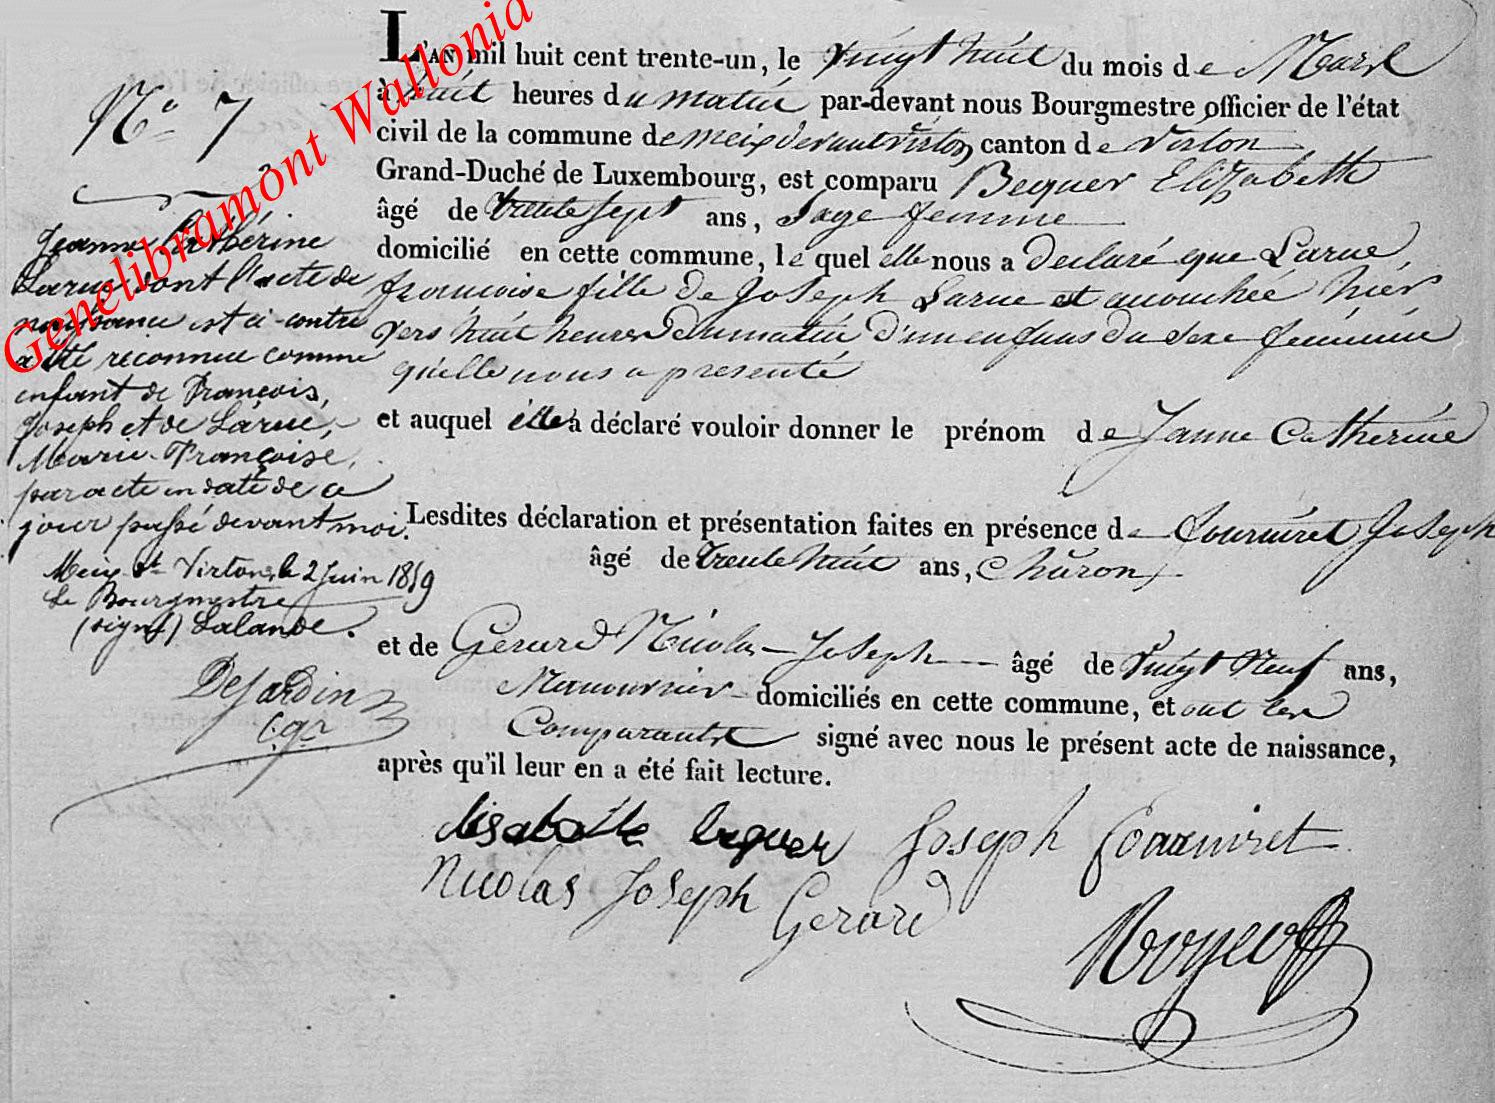 L'AN mil huit cent trente-un, le vingt huit du mois de Mars
à huit heures du matin par-devant nous Bourgmestre officier de l'état
civil de la commune de meix devant virton canton de virton
Grand-Duché de Luxembourg, est comparu Bequer Elizabeth
âgé de trente sept ans, Sage femme
domicilié en cette commune, le quel elle nous a declaré que Larue,
francoise fille de Joseph Larue est acouchée hier
vers huit heures du matin d'un enfans du sexe féminin
qu'elle nous a presenté
et auquel elle à déclaré vouloir donner le prénom de Janne Catherine
Lesdites déclaration et présentation faites en présence de fourniret Joseph
âgé de trente huit ans, Charon
et de Gerard Nicolas Joseph âgé de vingt Neuf ans,
Manouvrier domiciliés en cette commune, et ont les
Comparants signé avec nous le présent acte de naissance,
après qu'il leur en a été fait lecture.
Joseph fourniret
Nicolas Joseph Gerard
N° 7
Jeanne Catherine
Larue dont l'acte de
naissance est ci-contre
a été reconnue comme
enfant de François,
Joseph et de Larue,
Marie-Françoise,
par acte en date de ce
jour passé devant moi.
Meix-dt Virton, le 2 Juin 1859
Le Bourgmestre
(signé) Lalande.
Desardin
Genelibramont Wallonia